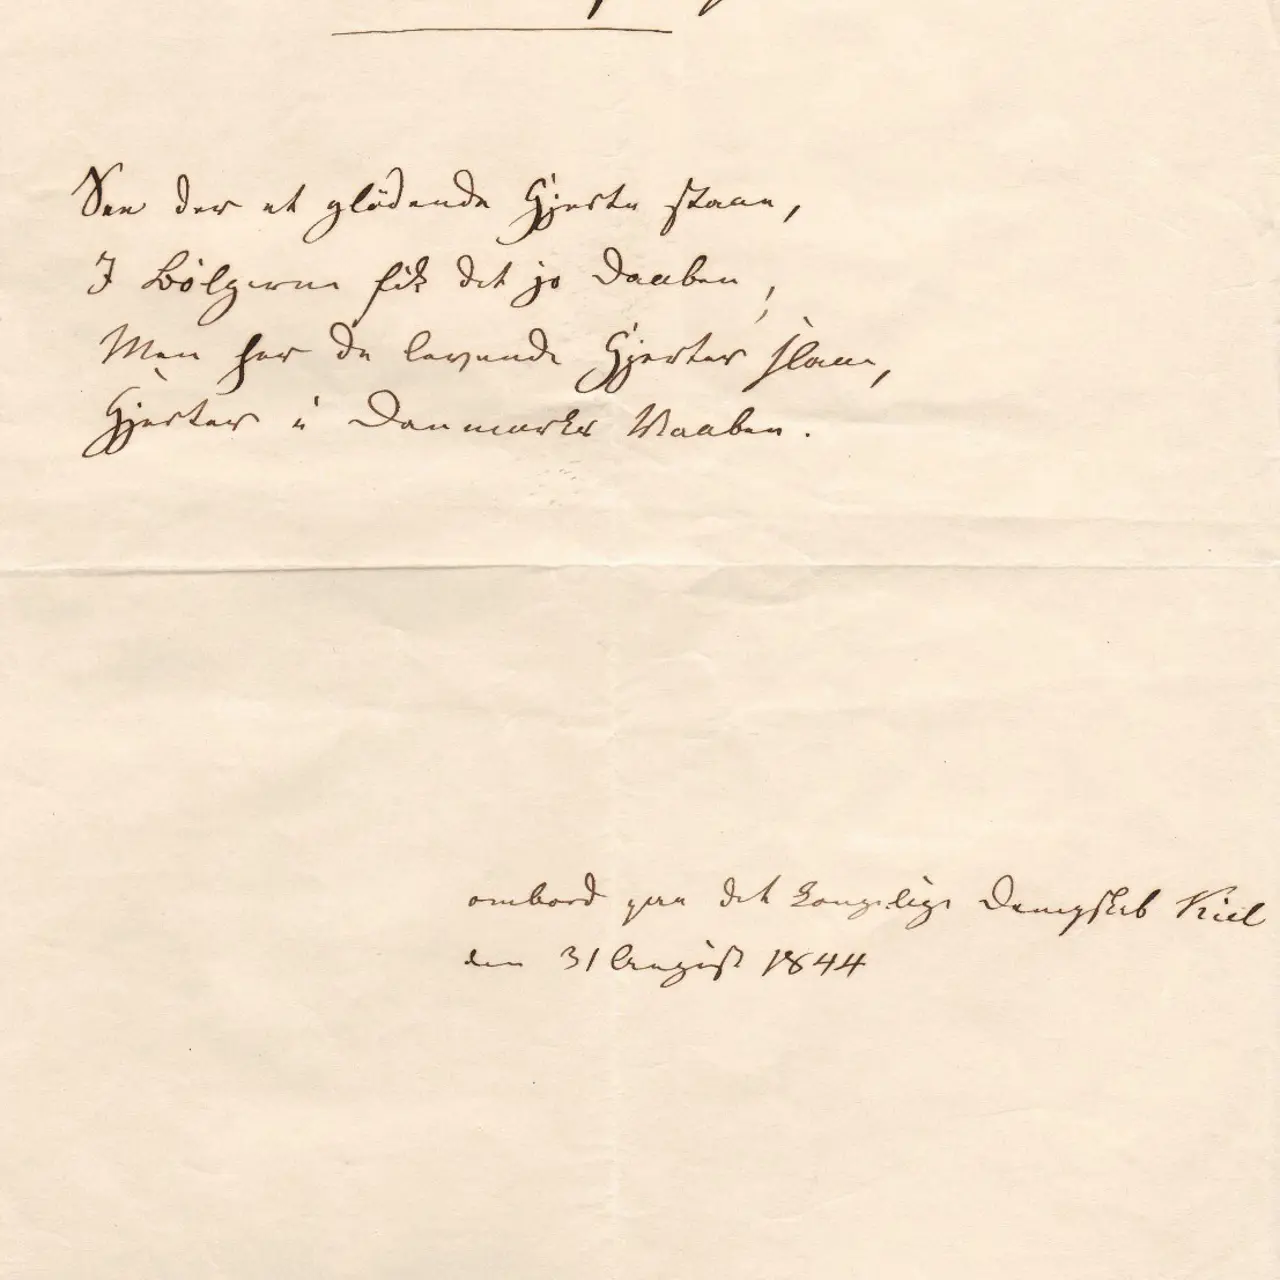 See der et glødende Hjerte staae,
I Bølgerne fik det jo Daaben,
Men her de levende Hjerter slaae,
Hjerter i Danmarks Vaaben.
ombord paa det kongelige Dampskib Kiel
den 31 August 1844